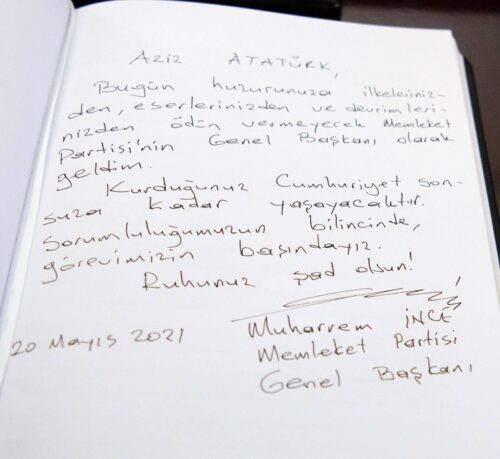 Aziz ATATÜRK,
Bugün huzurunuza ilkeleriniz-
den, eserlerinizden ve devrimleri-
nizden ödün vermeyecek Memleket
Partisi'nin Genel Başkanı olarak
geldim.
Kurduğunuz Cumhuriyet son-
suza kadar yaşayacaktır.
Sorumluluğumuzun bilincinde,
görevimizin başındayız.
Ruhunuz şad olsun!
20 Mayıs 2021
Muharrem İNCE
Memleket Partisi
Genel Başkanı